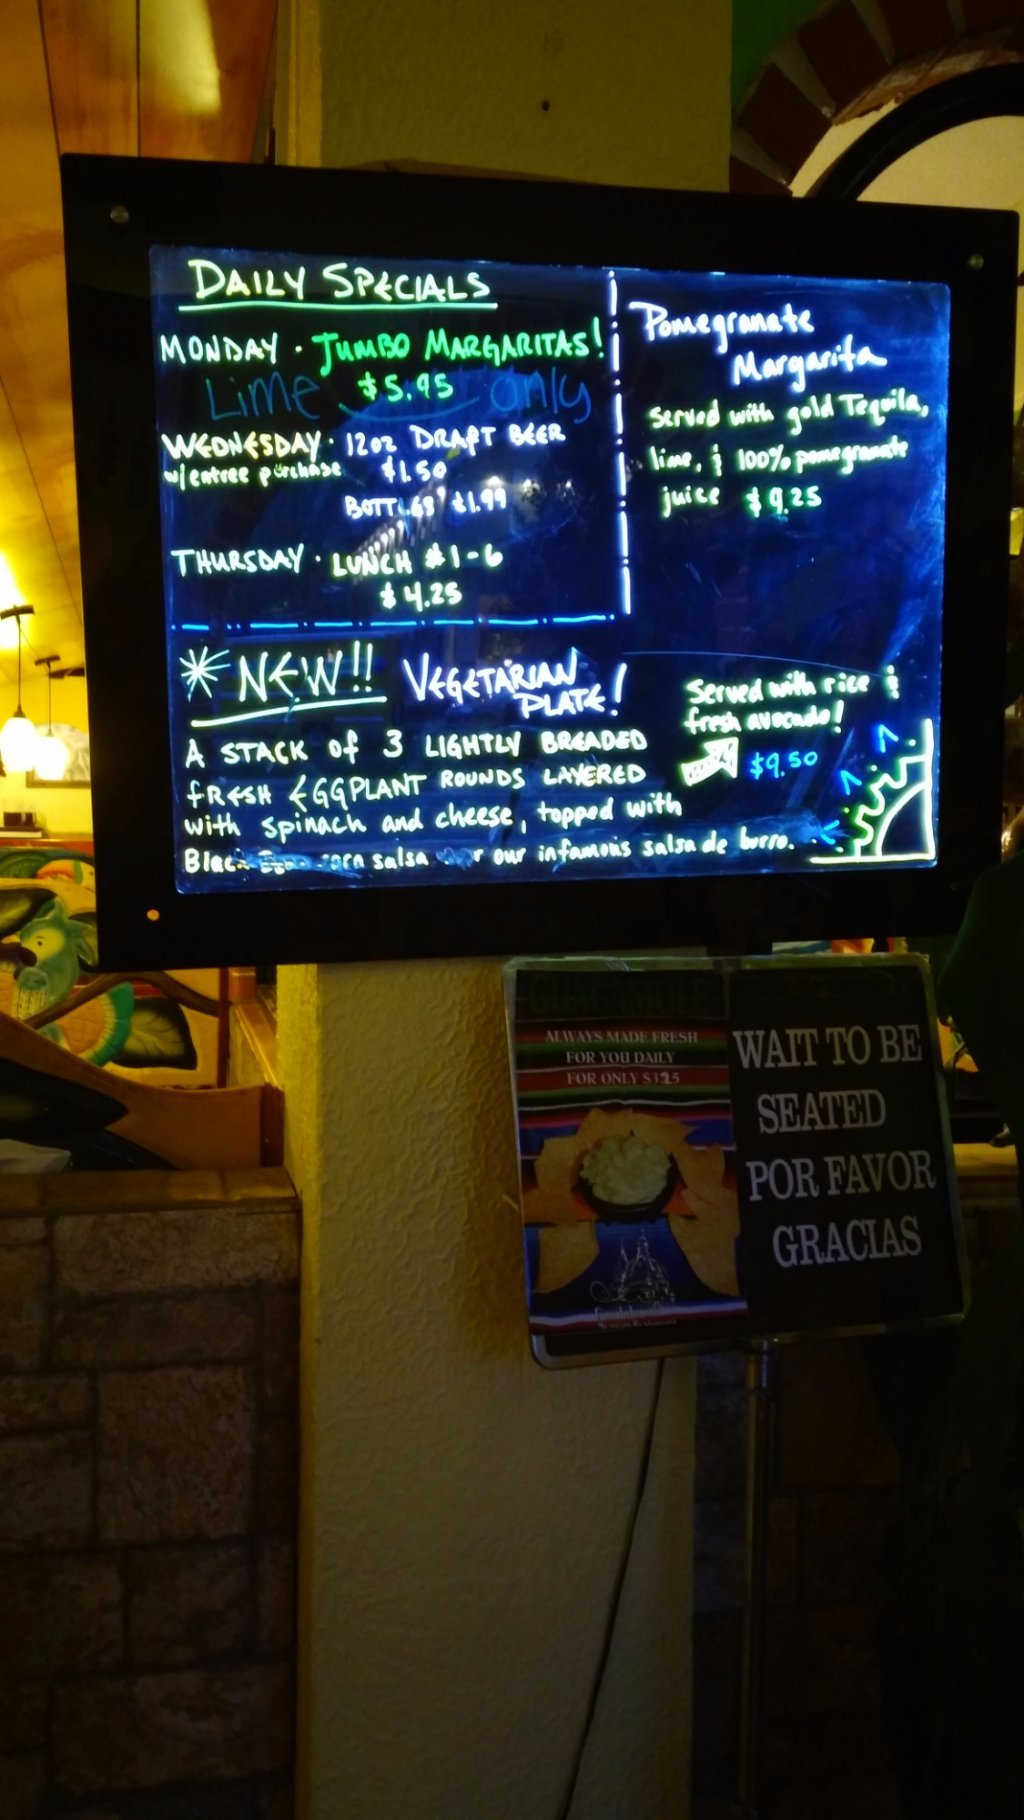 DAILY SPECIALS
MONDAY · JUMBO MARGARITAS!
Lime $5.95 only
WEDNESDAY · 12oz DRAFT BEER
w/entree purchase $1.50
BOTTLES $1.99
THURSDAY · LUNCH #1-6
$4.25
Pomegranate
Margarita
served with gold Tequila,
lime, & 100% pomegranate
juice $9.25
NEW!! VEGETARIAN
PLATE!
A STACK of 3 LIGHTLY BREADED
FRESH EGGPLANT ROUNDS LAYERED
with spinach and cheese, topped with
Black corn salsa our infamous salsa de burro.
Served with rice &
fresh avocado!
$9.50
GUACAMOLE
ALWAYS MADE FRESH
FOR YOU DAILY
FOR ONLY $3.25
WAIT TO BE
SEATED
POR FAVOR
GRACIAS